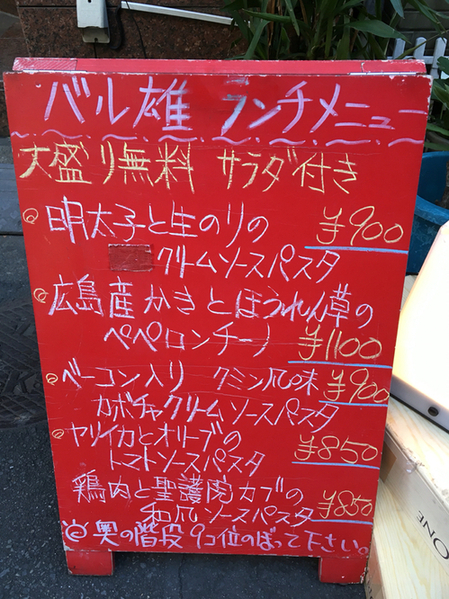 バル雄 ランチメニュー
大盛り無料 サラダ付き
明太子と生のりの ¥900
クリームソースパスタ
広島産かきとほうれん草の
ペペロンチーノ ¥1100
ベーコン入り クミン風味 ¥900
カボチャクリームソースパスタ
ヤリイカとオリーブの
トマトソースパスタ ¥850
鶏肉と聖護院カブの
和風ソースパスタ ¥850
奥の階段 9コ位のぼって下さい。
ONE